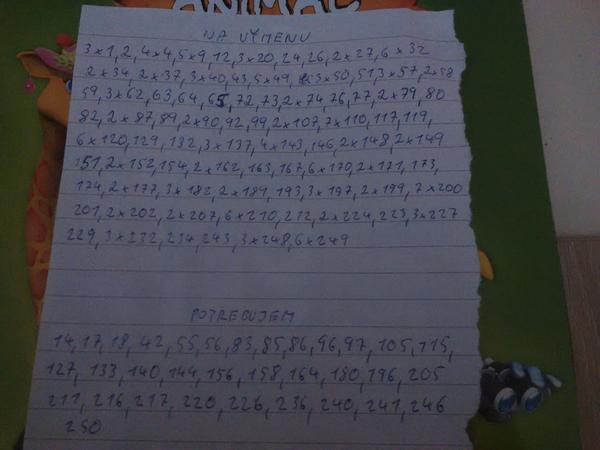 ANIMAL
NA VÝMENU
3x1,2,4x4,5x9,12,3x20,24,26,2x27,6x32
2x34,2x37,3x40,43,5x49,3x50,51,3x57,2x58
59,3x62,63,64,65,72,73,2x74,76,77,2x79,80
82,2x87,89,2x90,92,99,2x107,7x110,117,119,
6x120,129,132,3x137,4x143,146,2x148,2x149
151,2x152,154,2x162,163,167,6x170,2x171,173,
174,2x177,3x182,2x189,193,3x197,2x199,7x200
201,2x202,2x207,6x210,212,2x224,223,3x227
229,3x232,234,243,3x248,6x249
POTREBUJEM
14,17,18,42,55,56,83,85,86,96,97,105,115,
127,133,140,144,156,158,164,180,196,205
211,216,217,220,226,236,240,241,246
250